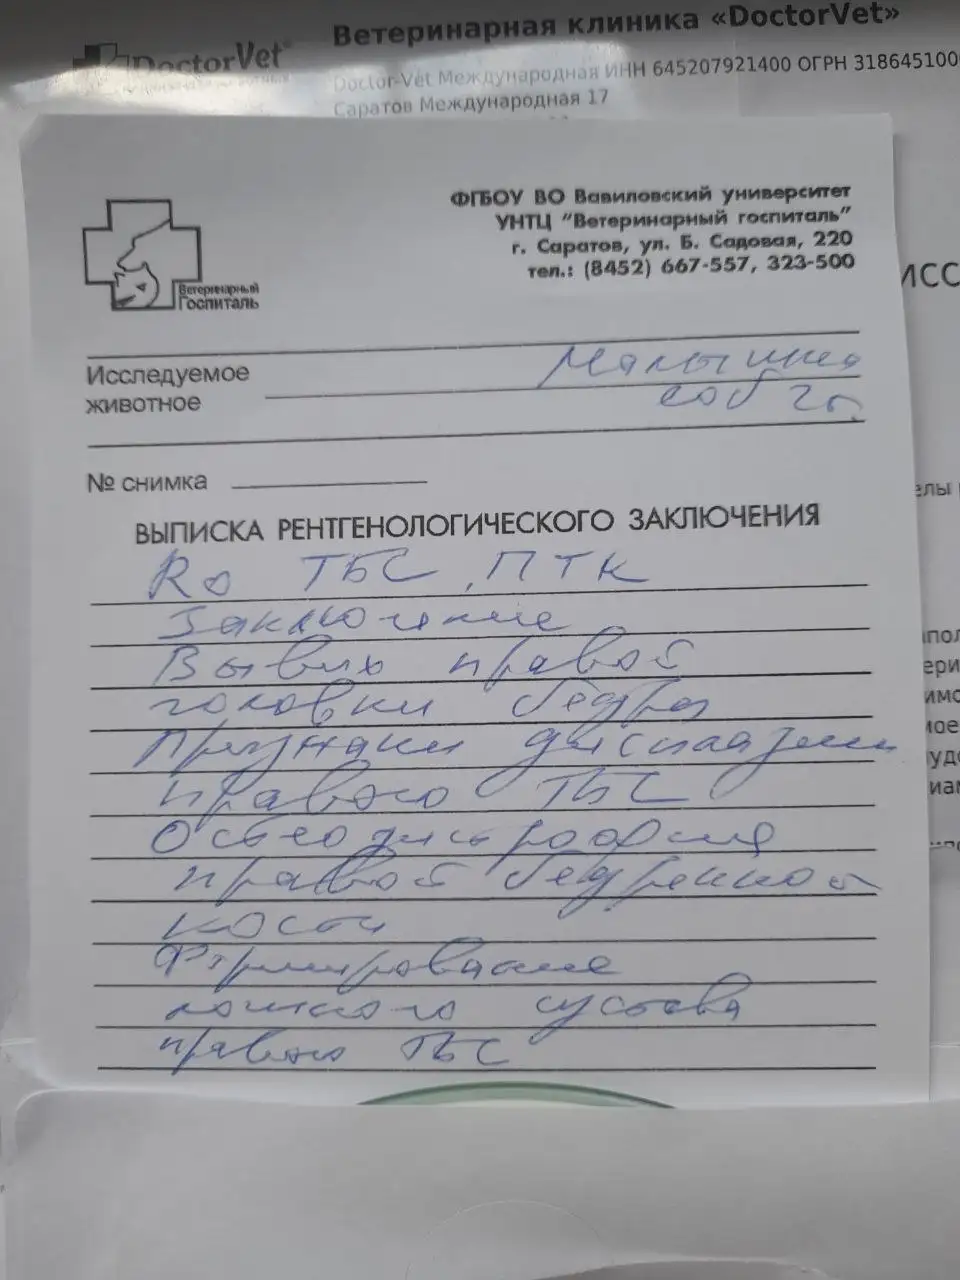 Ветеринарная клиника «DoctorVet»
DoctorVet
Doctor-Vet Международная ИНН 645207921400 ОГРН 318645100
Саратов Международная 17
ФГБОУ ВО Вавиловский университет
УНТЦ "Ветеринарный госпиталь"
г. Саратов, ул. Б. Садовая, 220
тел.: (8452) 667-557, 323-500
Ветеринарный
Госпиталь
Исследуемое
животное
соб 2г.
№ снимка
ВЫПИСКА РЕНТГЕНОЛОГИЧЕСКОГО ЗАКЛЮЧЕНИЯ
Ro ТБС, ПТК
Заключение
Вывих правой
головки бедра
Признаки дисплазии
правого ТБС
Остеодистрофия
правой бедренной
кости
Формирование
ложного сустава
правого ТБС